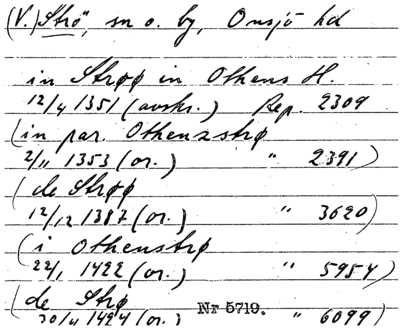 (V.) Strö, sn o. by, Onsjö hd
in Strøø in Othens H.
12/4 1351 (avskr.) Rep. 2309
(in par. Othenzstrø
2/11 1353 (or.) " 2391)
(de Strøø
12/12 1387 (or.) " 3620)
(i Othenstrø
22/1 1422 (or.) " 5954)
(de Strø
30/4 1424 (or.) " 6099)
Nr 5719.